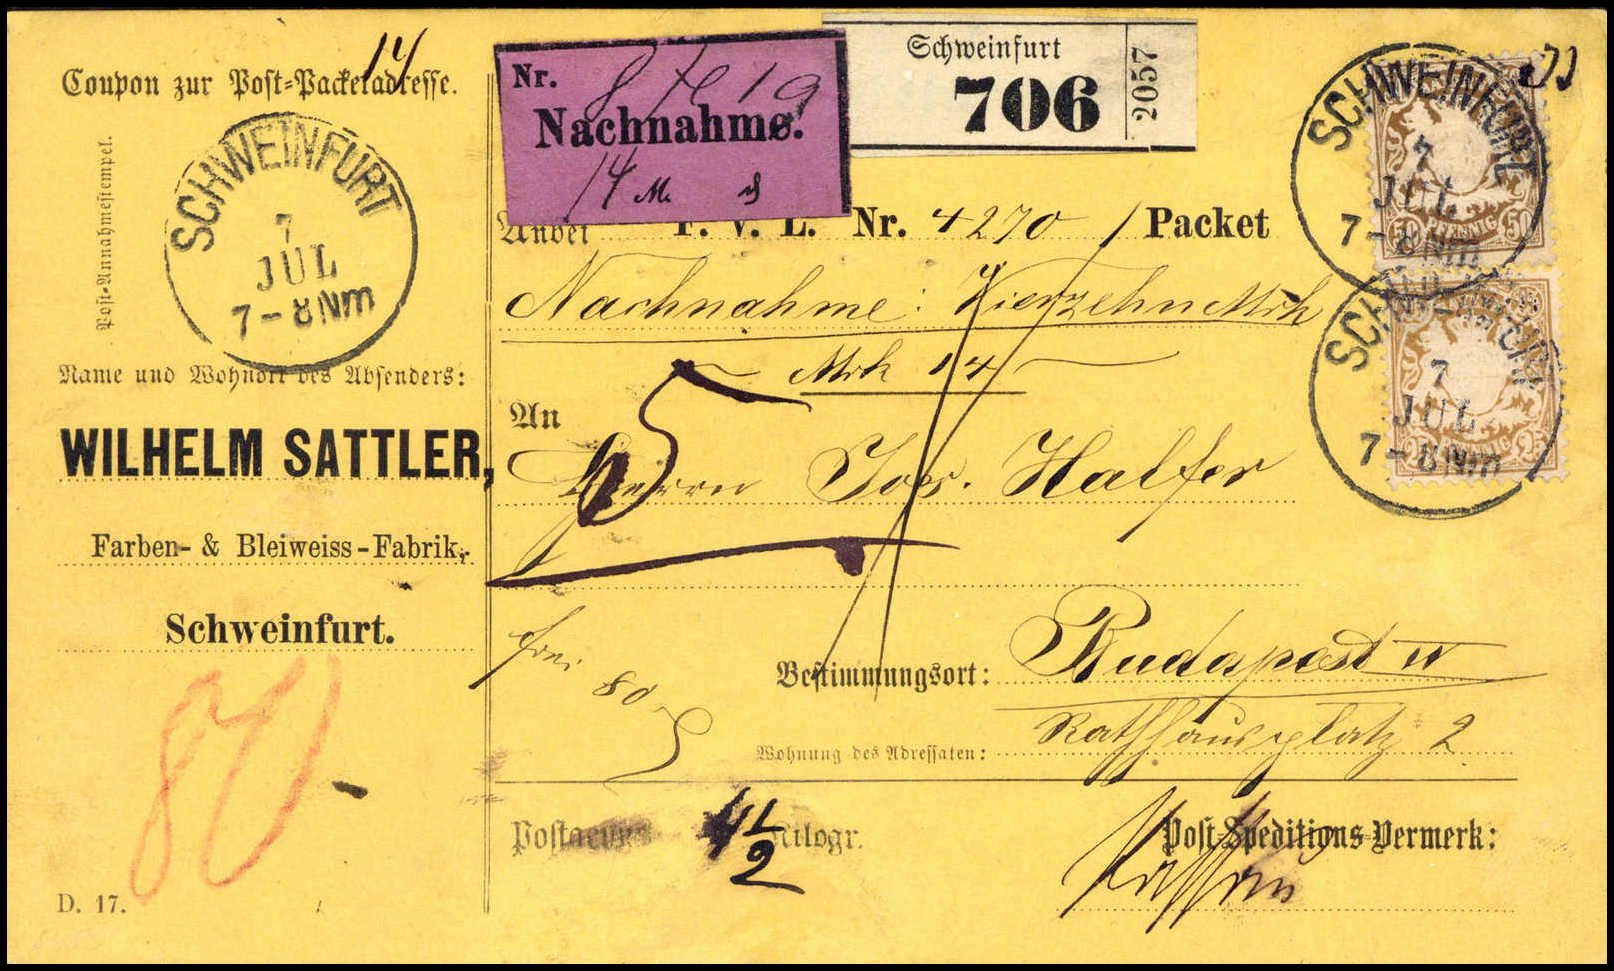 14
Coupon zur Post-Packetadresse.
Post-Annahmestempel.
SCHWEINFURT
7
JUL
7-8Nm
Name und Wohnort des Absenders:
WILHELM SATTLER,
Farben- & Bleiweiss-Fabrik,
Schweinfurt.
80
D. 17.
Nr.
Nachnahme.
14 M.
Schweinfurt
706
2057
SCHWEINFURT
7
JUL
7-8Nm
50 PFENNIG 50
SCHWEINFURT
7
JUL
7-8Nm
25
Anbei F. V. L. Nr. 4270 / Packet
Nachnahme: Vierzehn Mrk
Mrk 14
An
5
Herrn Jos. Halfer
frei
80
Bestimmungsort: Budapest IV
Wohnung des Adressaten: Rathhausplatz 2
4 1/2 Kilogr.
Post-Speditions-Vermerk:
Passau